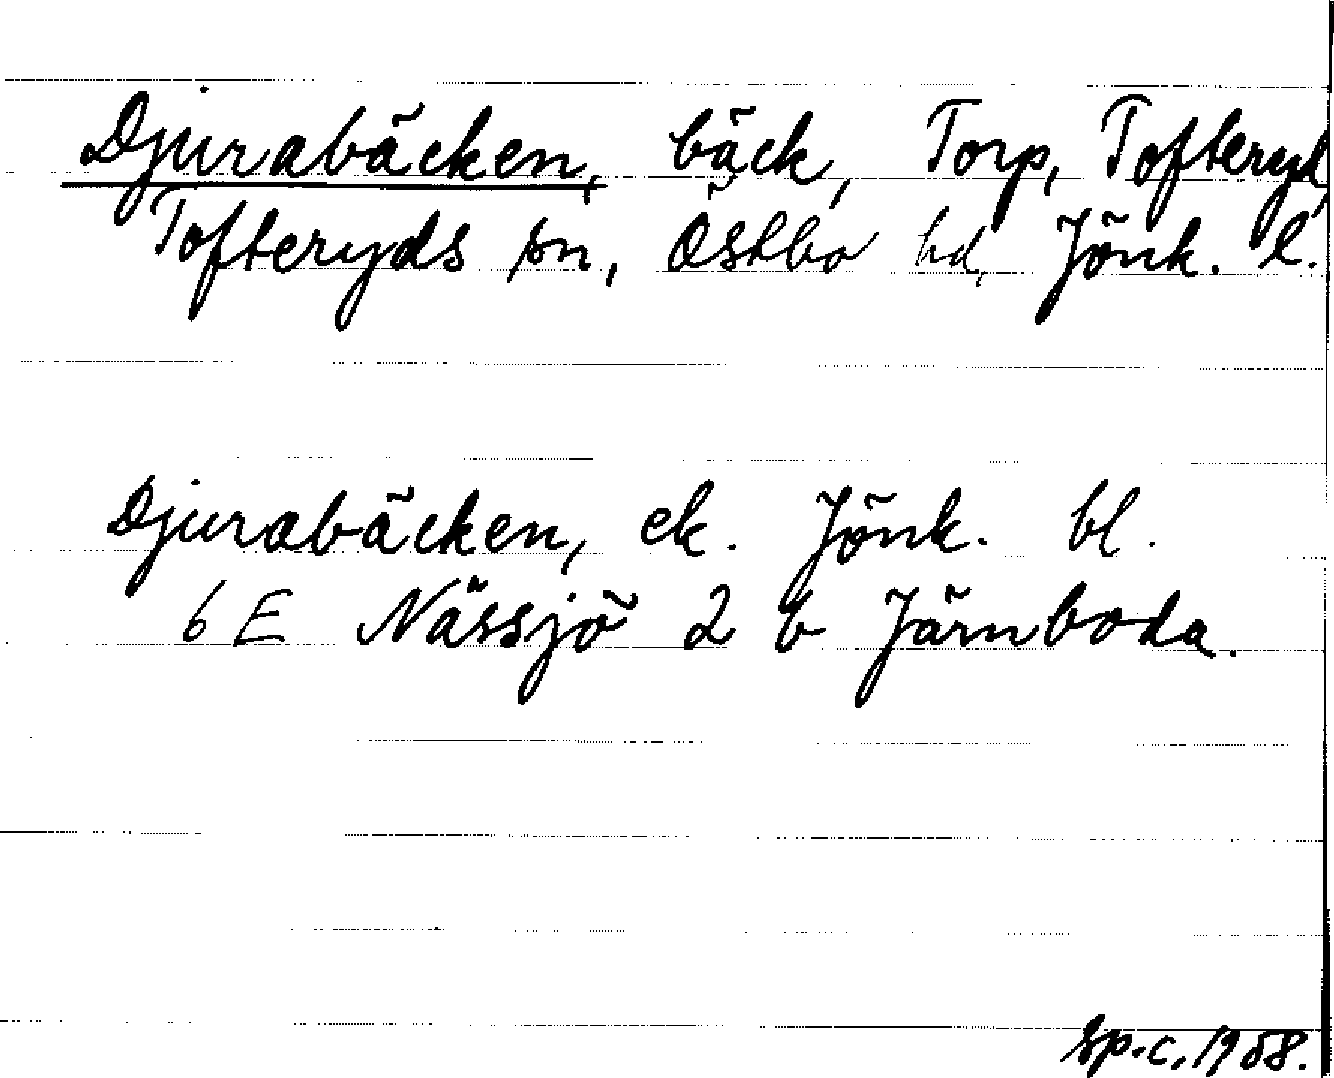 Djurabäcken, bäck, Torp, Tofteryd,
Tofteryds sn, Östbo hd, Jönk. l.
Djurabäcken, ek. Jönk. bl.
6 E Nässjö 2 b Järnboda.
Sp.c. 1958.